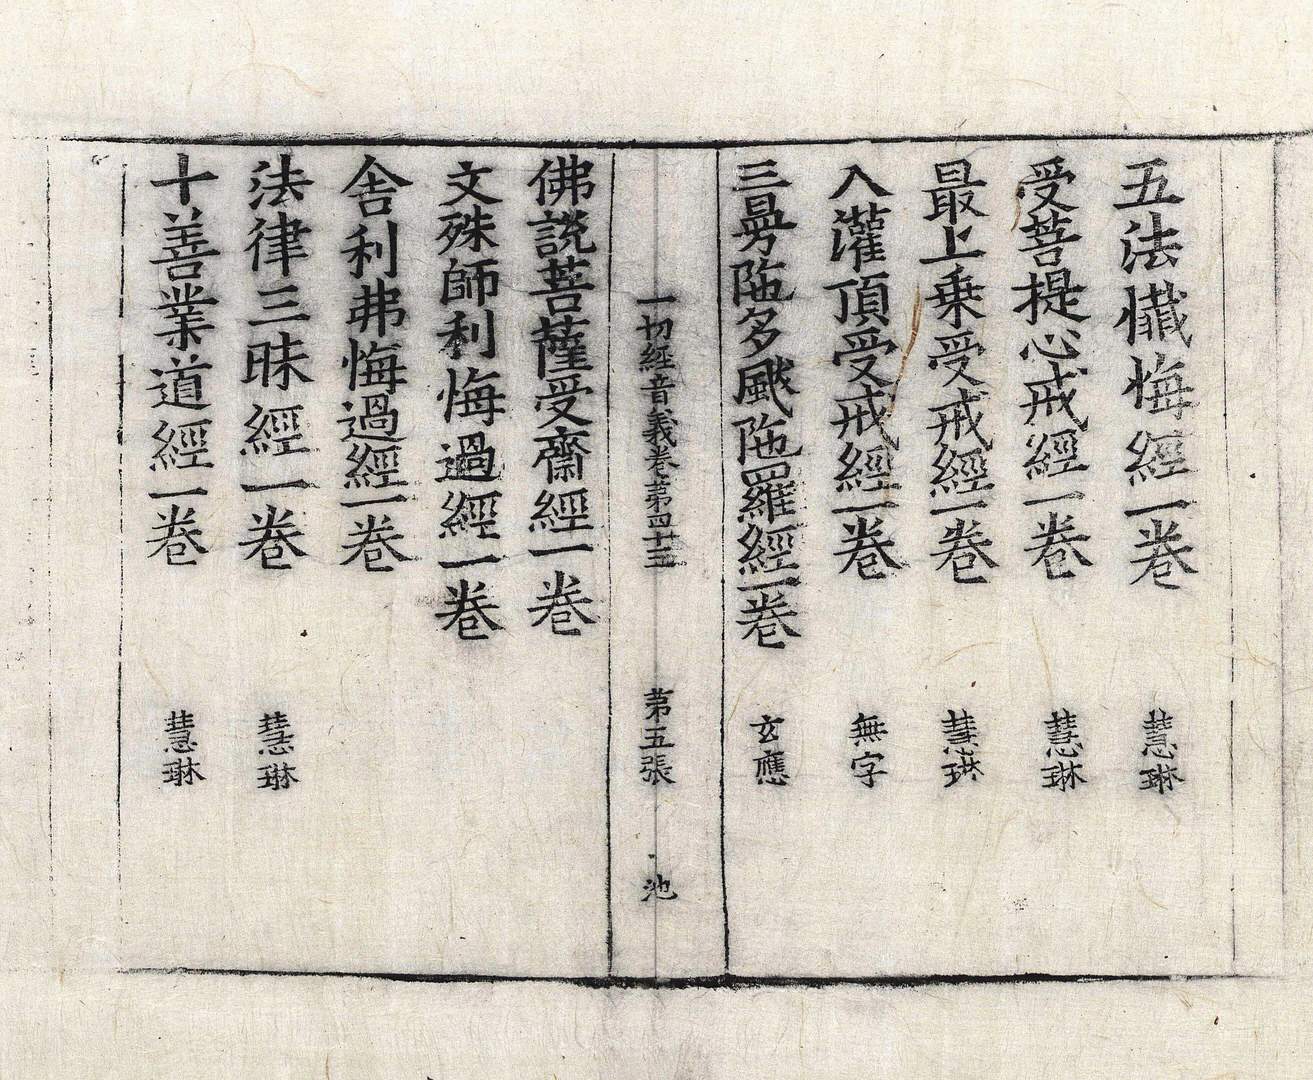 五法懺悔經一卷 慧琳
受菩提心戒經一卷 慧琳
最上乗受戒經一卷 慧琳
入灌頂受戒經一卷 無字
三曼陁多颰陁羅經一卷 玄應
一切經音義卷第四十三 第五張 池
佛説菩薩受齋經一卷
文殊師利悔過經一卷
舎利弗悔過經一卷
法律三昧經一卷 慧琳
十善業道經一卷 慧琳